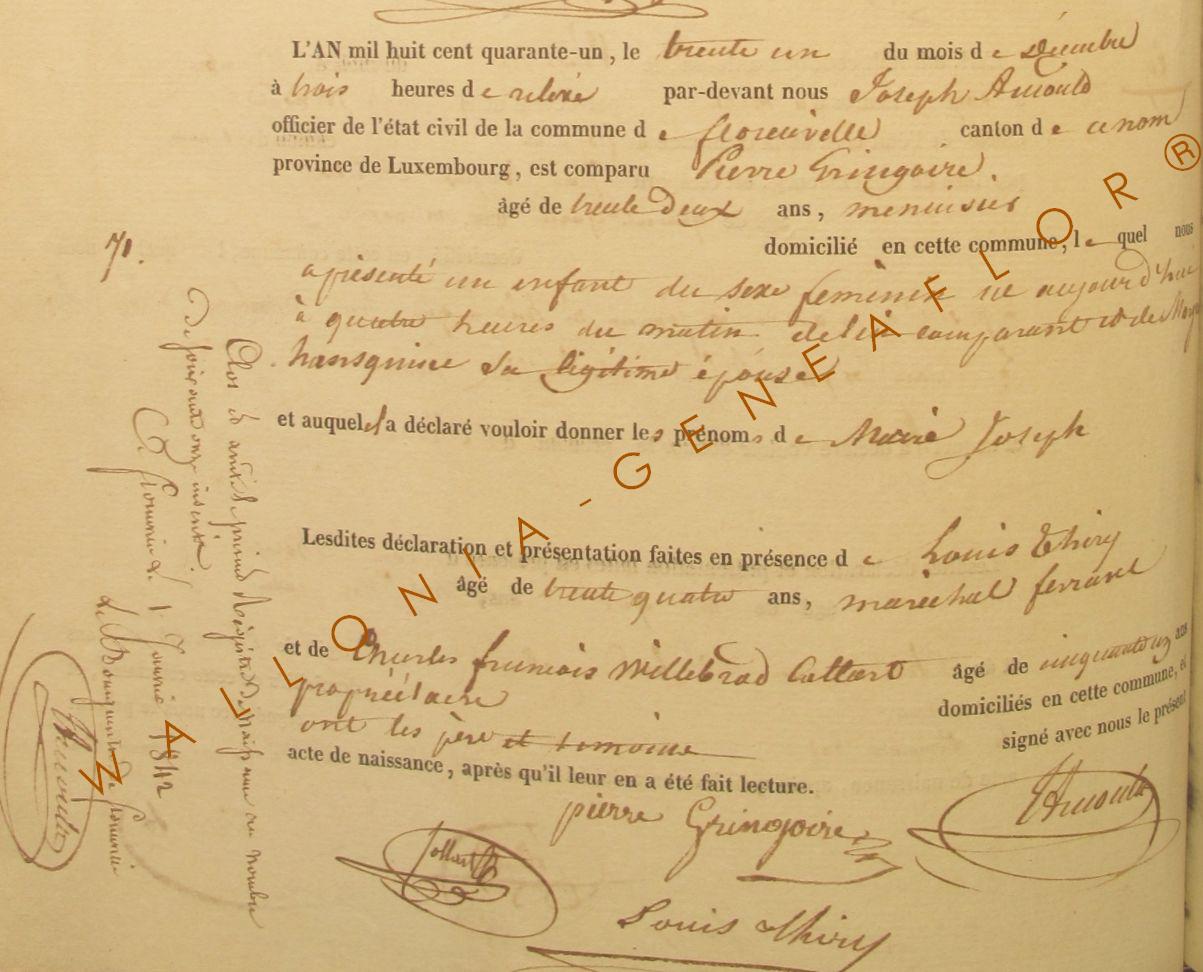 L'AN mil huit cent quarante-un, le trente un du mois de décembre
à trois heures de relevé par-devant nous Joseph Arnould
officier de l'état civil de la commune de florenville canton de ce nom
province de Luxembourg, est comparu Pierre Gringoire.
âgé de trente deux ans, menuisier
domicilié en cette commune, lequel nous
71.
a présenté un enfant du sexe féminin né aujourd'hui
à quatre heures du matin de lui comparant et de
sa légitime épouse
et auquel a déclaré vouloir donner les prénoms de Marie Joseph
Lesdites déclaration et présentation faites en présence de Louis Thiry
âgé de trente quatre ans, maréchal ferrant
et de Charles françois Willebrod âgé de ans
propriétaire domiciliés en cette commune, et
ont les père et témoins signé avec nous le présent
acte de naissance, après qu'il leur en a été fait lecture.
pierre Gringoire
Arnould
Louis Thiry
Clos et arrêté le présent Régistre de Naissance au nombre
de soixante onze inscrits.
à florenville le 1 Janvier 1842
Le Bourgmestre de florenville
Arnould
LLONIA-GENEAFLOR®